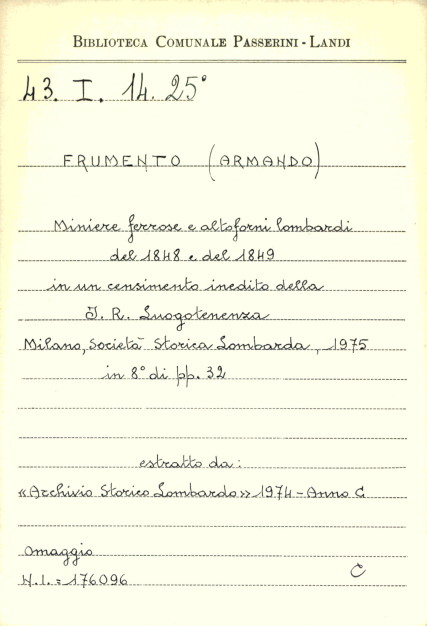 BIBLIOTECA COMUNALE PASSERINI - LANDI
43. I. 14. 25°
FRUMENTO (ARMANDO)
Miniere ferrose e altoforni lombardi
del 1848 e del 1849
in un censimento inedito della
I. R. Luogotenenza
Milano, Società Storica Lombarda, 1975
in 8° di pp. 32
estratto da:
«Archivio Storico Lombardo» 1974 - Anno C
Omaggio
N.I. = 176096
C